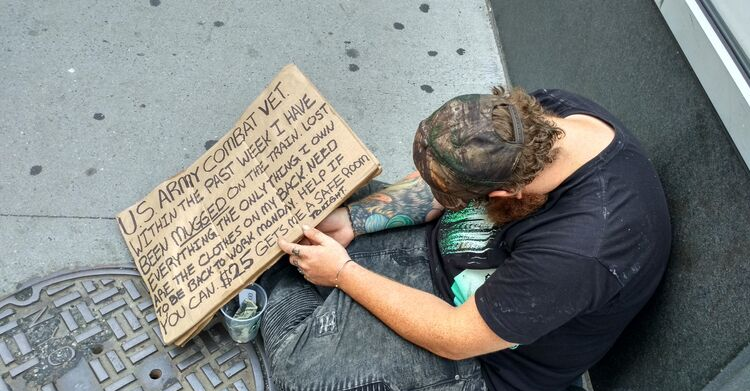 US ARMY COMBAT VET.
WITHIN THE PAST WEEK I HAVE
BEEN MUGGED ON THE TRAIN. LOST
EVERYTHING. THE ONLY THING I OWN
ARE THE CLOTHES ON MY BACK NEED
TO BE BACK TO WORK MONDAY. HELP IF
YOU CAN. $25 GETS ME A SAFE ROOM
TONIGHT